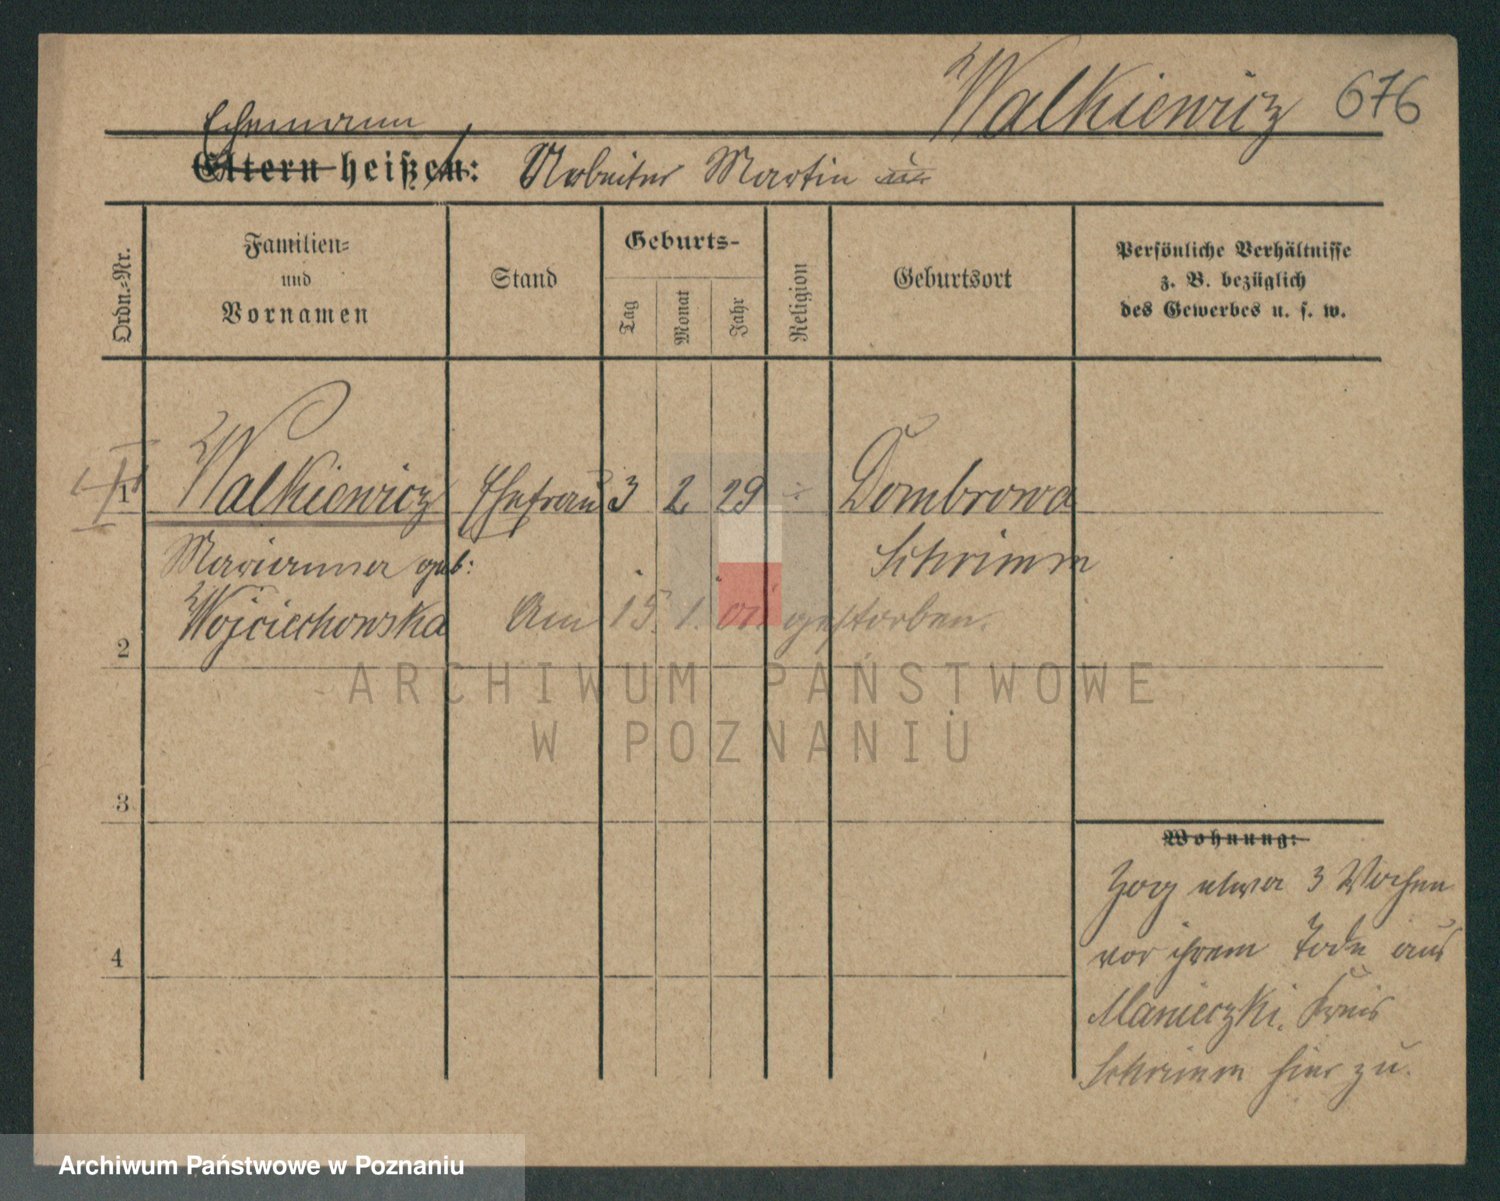 Walkiewicz 676
Ehemann
Eltern heißen: Arbeiter Martin
Ordn.-Nr.
Familien-
und
Vornamen
Stand
Geburts-
Tag
Monat
Jahr
Religion
Geburtsort
Persönliche Verhältnisse
z. B. bezüglich
des Gewerbes u. s. w.
1 Walkiewicz Ehefrau 3 2 29 Dombrowa
Marianna geb: Schrimm
Wojciechowska Am 15. 1. 01 gestorben.
2
3
4
Wohnung:
Zog etwa 3 Wochen
vor ihrem Tode aus
Manieczki, Kreis
Schrimm hier zu.
ARCHIWUM PAŃSTWOWE
W POZNANIU
Archiwum Państwowe w Poznaniu